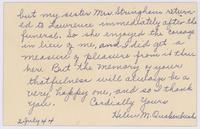 but my sister Mrs Stringham return-
ed to Lawrence immediately after the
funeral. So she enjoyed the corsage
in lieu of me, and I did get a
measure of pleasure from it thru
her. But the memory of your
thotfulness will always be a
very happy one, and so I thank
you. Cordially Yours
Helen M. Quackenbush
2 July 44